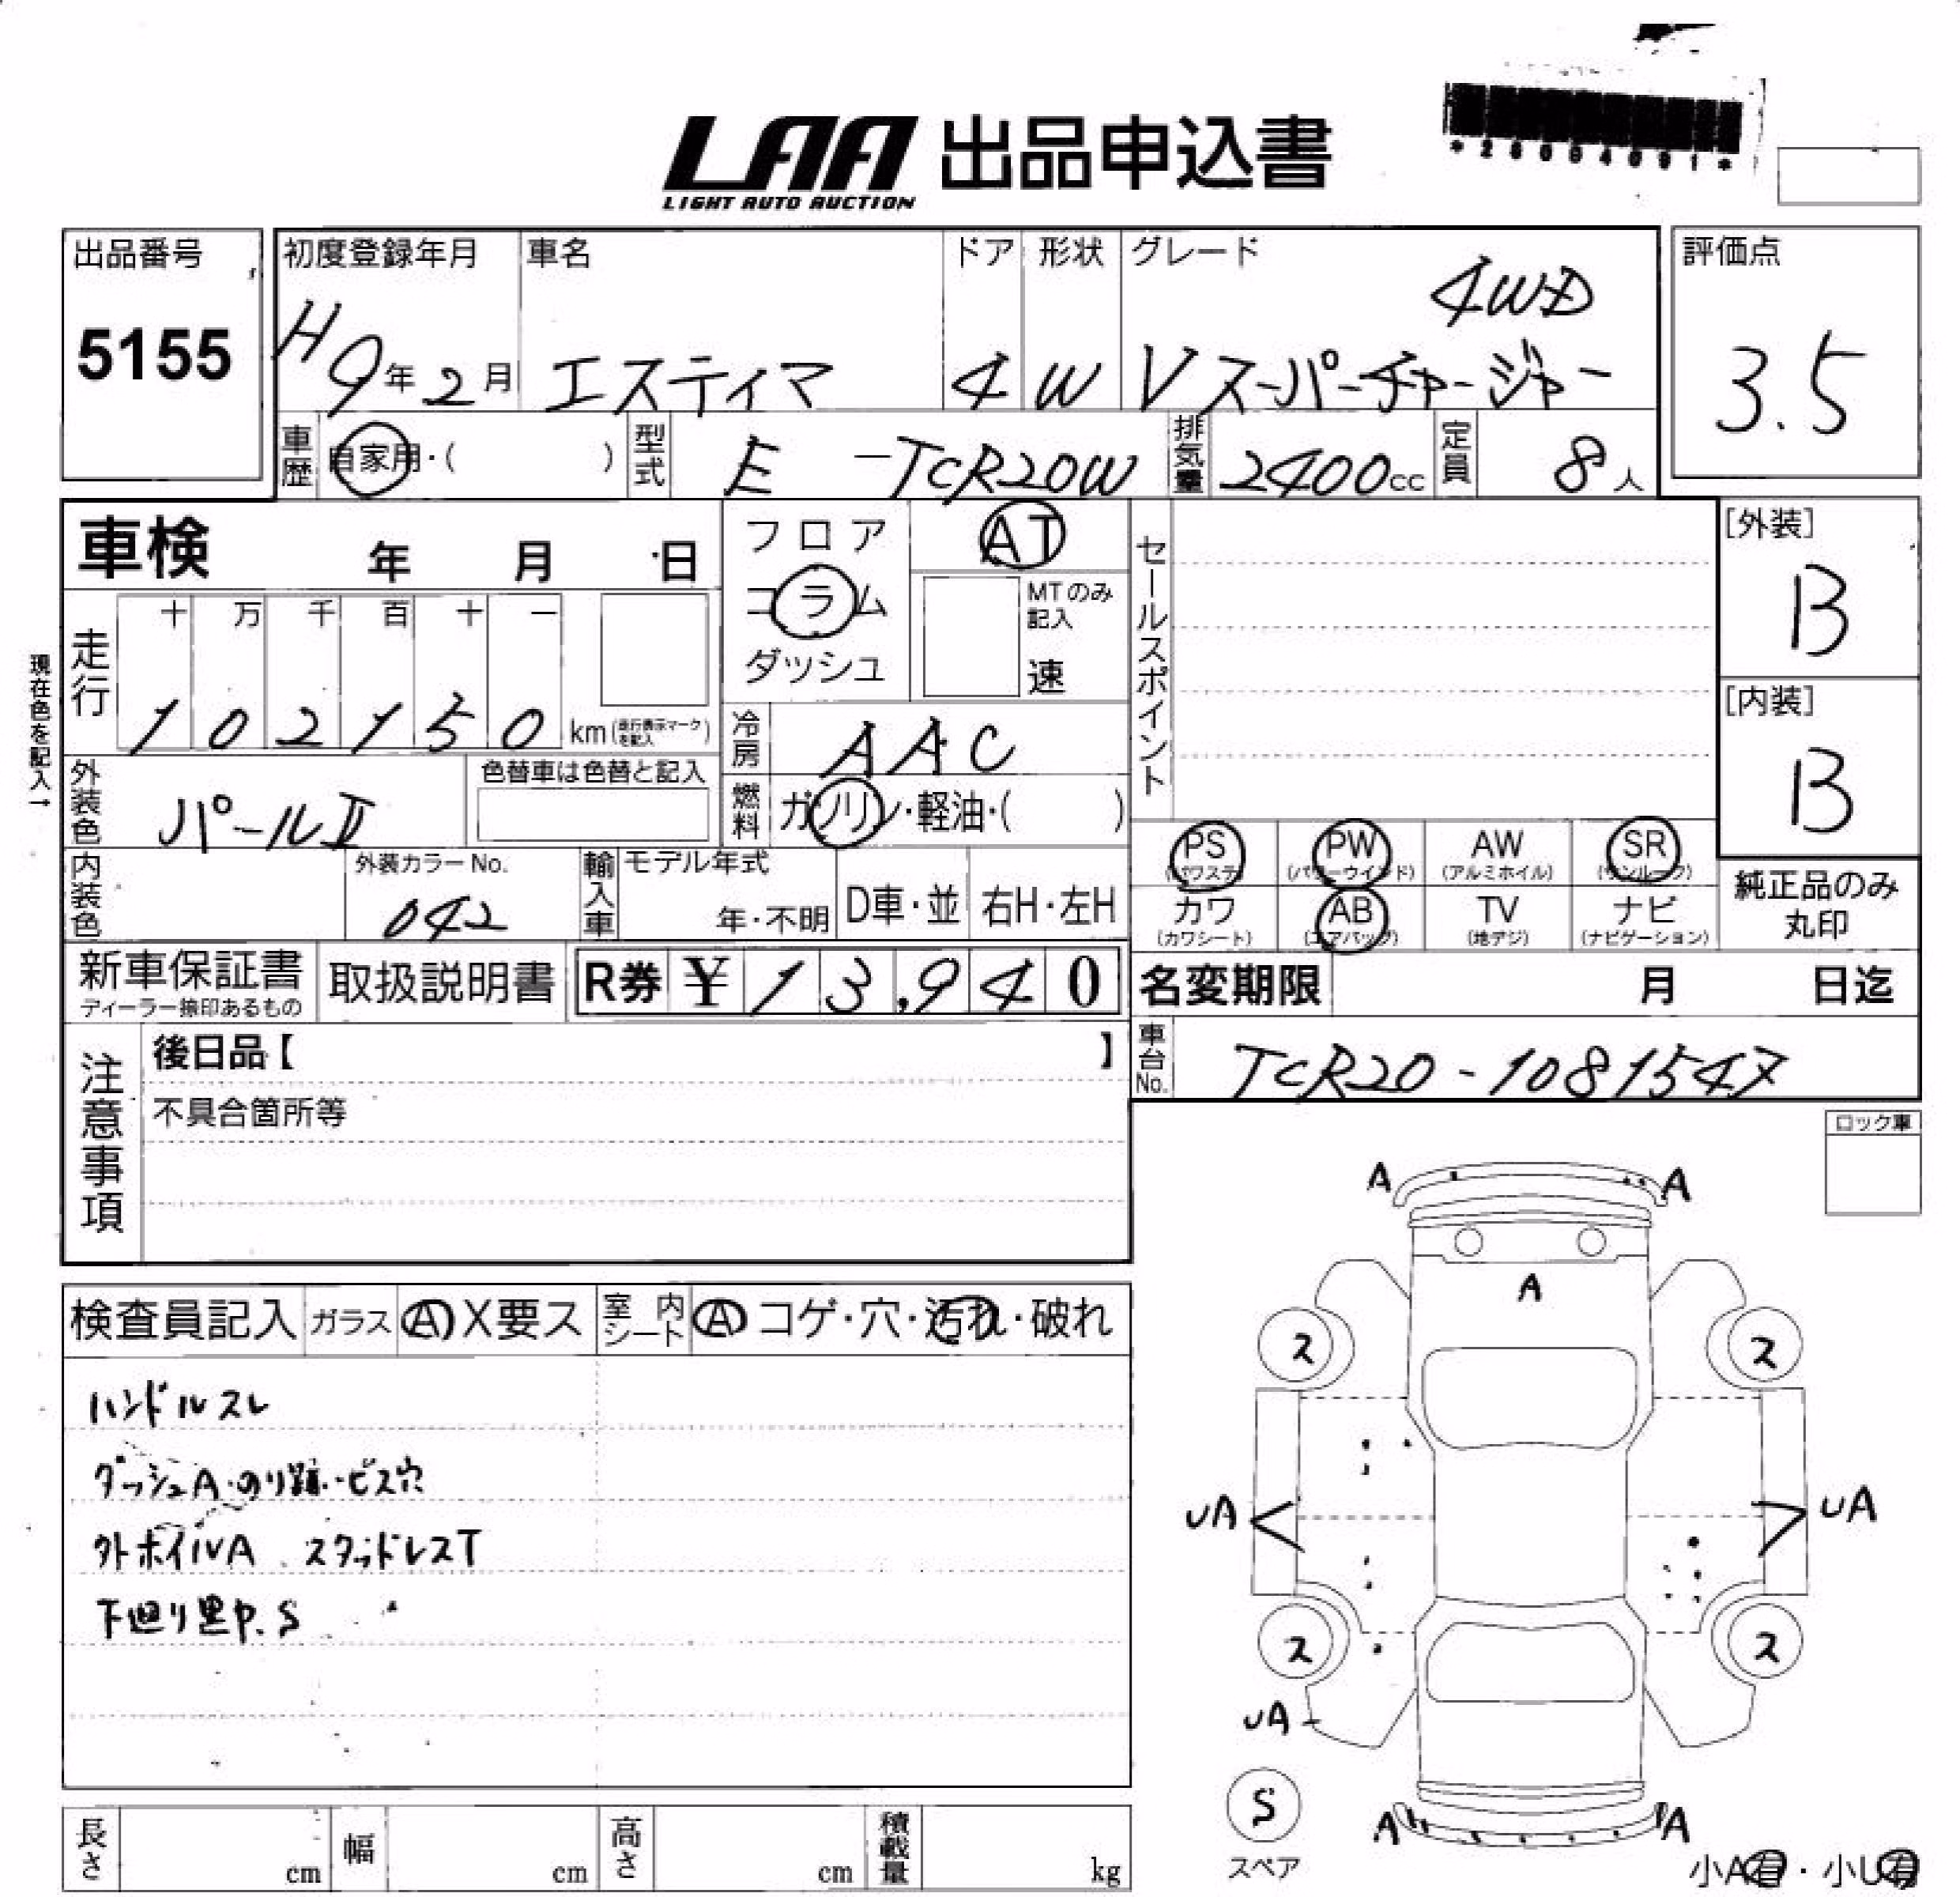 LAA 出品申込書
LIGHT AUTO AUCTION
*28004091*
出品番号
5155
初度登録年月
H9年2月
車名
エスティマ
ドア
4
形状
W
グレード
4WD
Vスーパーチャージャー
評価点
3.5
車歴
自家用・( )
型式
E-TCR20W
排気量
2400cc
定員
8人
車検 年 月 日
走行
十 万 千 百 十 一
1 0 2 1 5 0 km(走行表示マークを記入)
現在色を記入→
外装色
パールⅡ
色替車は色替と記入
内装色
外装カラーNo.
042
フロア
コラム
ダッシュ
AT
MTのみ
記入
速
冷房
AAC
燃料
ガソリン・軽油・( )
輸入車
モデル年式
年・不明
D車・並
右H・左H
セールスポイント
[外装]
B
[内装]
B
PS
(パワステ)
PW
(パワーウインド)
AW
(アルミホイル)
SR
(サンルーフ)
カワ
(カワシート)
AB
(エアバッグ)
TV
(地デジ)
ナビ
(ナビゲーション)
純正品のみ
丸印
新車保証書
ディーラー捺印あるもの
取扱説明書
R券 ¥ 13,940
名変期限 月 日迄
車台No.
TCR20-1081547
注意事項
後日品【 】
不具合箇所等
ロック車
検査員記入
ガラス
A X要ス
室内シート
A コゲ・穴・汚れ・破れ
ハンドルスレ
ダッシュA・のり跡・ビス穴
外ホイルA スタッドレスT
下廻り里中.S
A
A
A
ス
ス
UA
UA
ス
ス
UA
S
スペア
A
A
小A有・小U有
長さ cm
幅 cm
高さ cm
積載量 kg